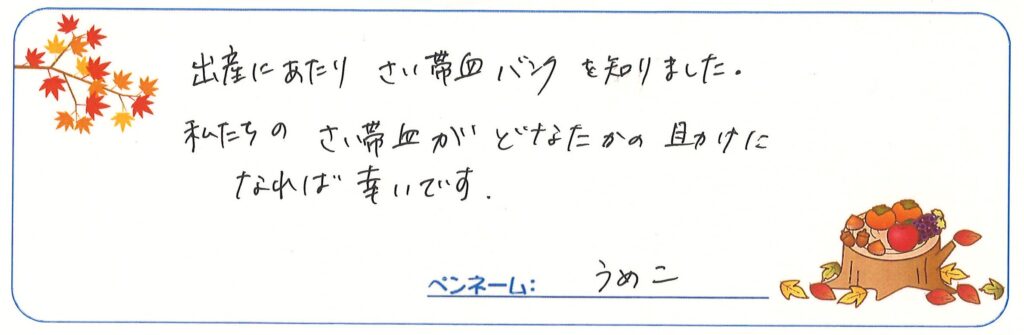 出産にあたり さい帯血バンク を知りました。
私たちの さい帯血が どなたかの 助けに
なれば 幸いです.
ペンネーム: うめこ